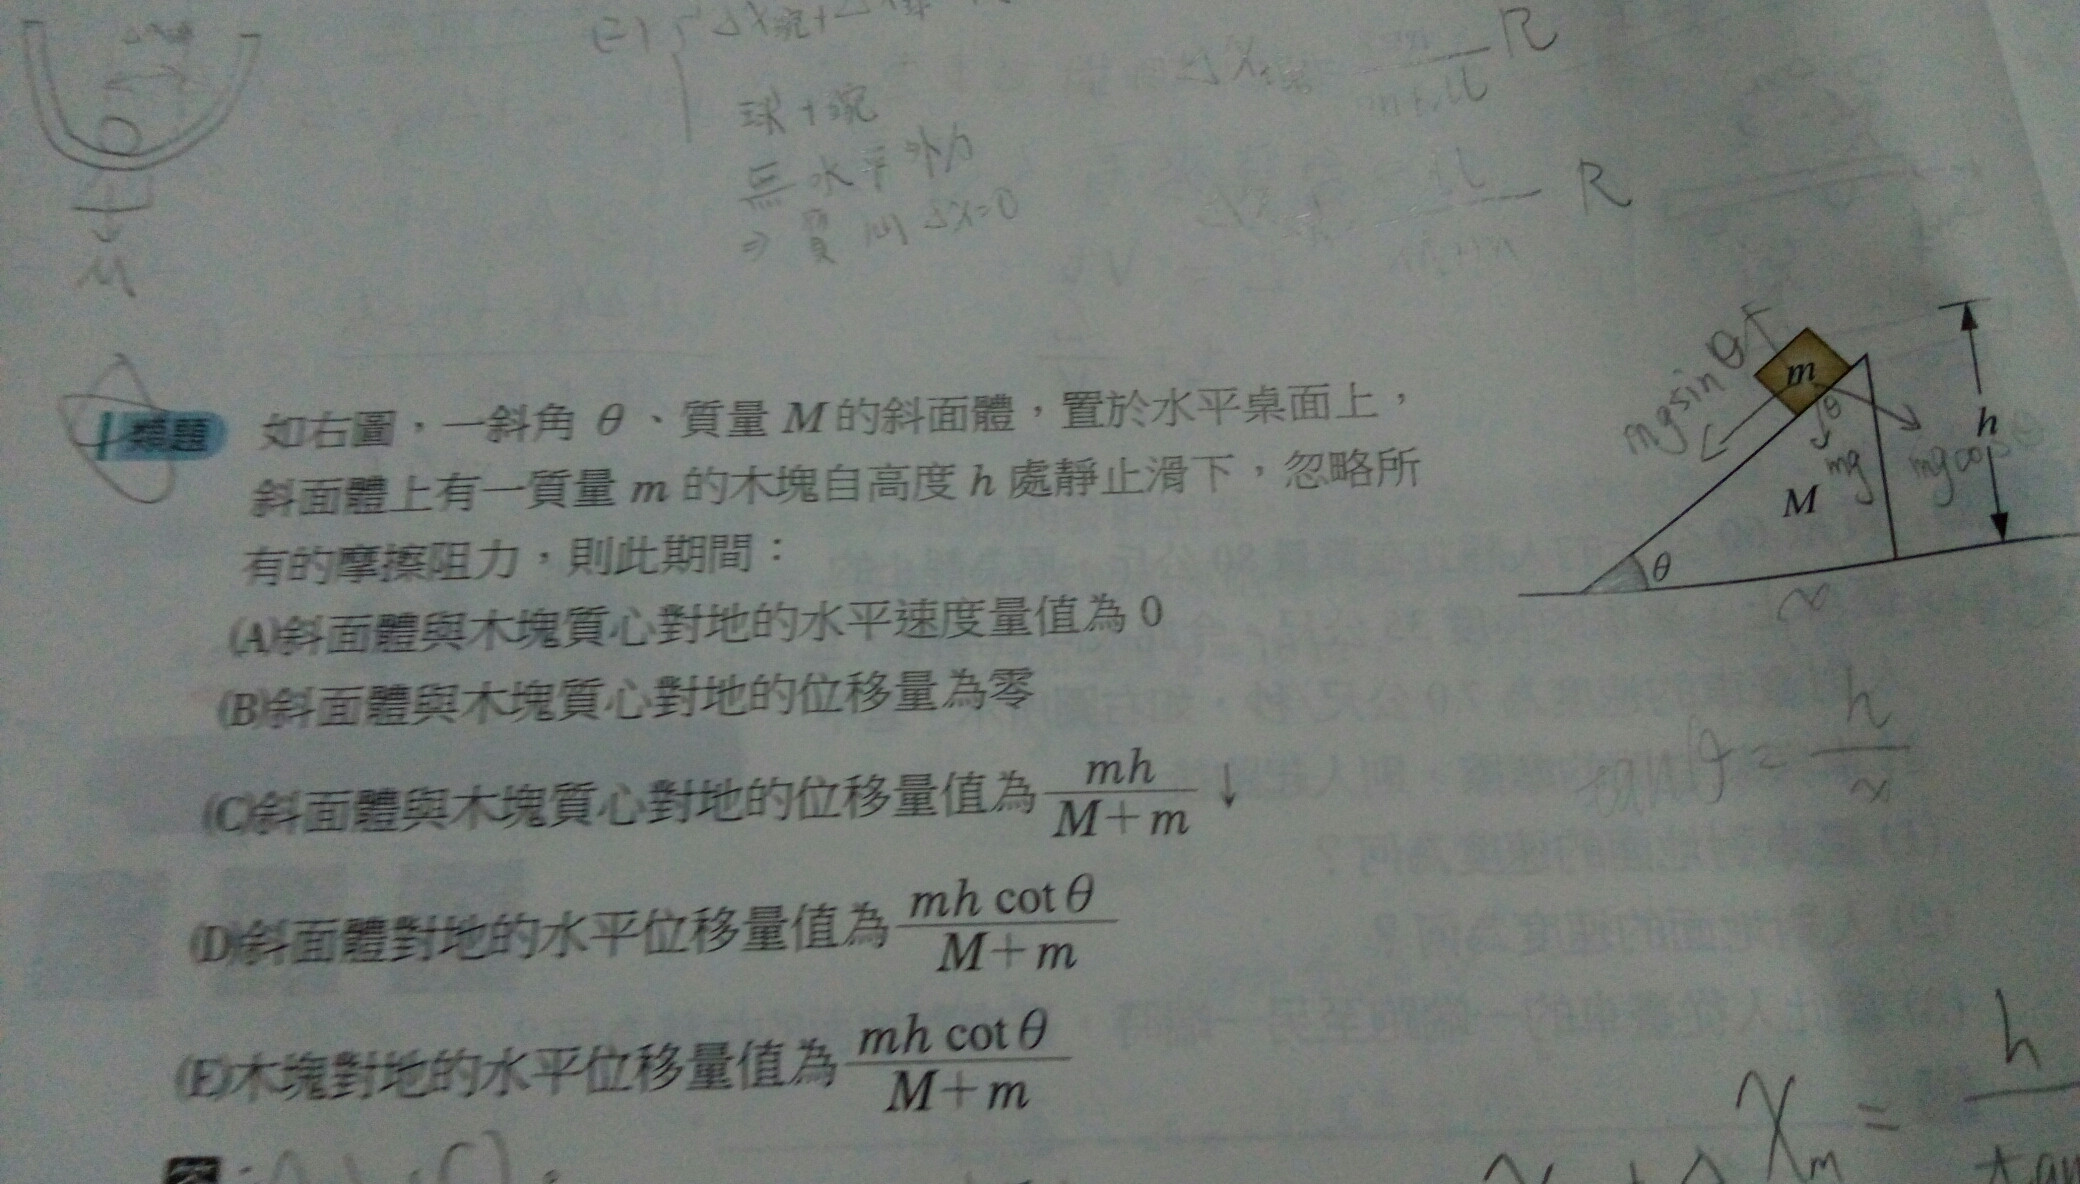 球+碗
無水平外力
⇒質心ΔX=0
R
R
M
類題 如右圖，一斜角 θ、質量 M 的斜面體，置於水平桌面上，
斜面體上有一質量 m 的木塊自高度 h 處靜止滑下，忽略所
有的摩擦阻力，則此期間：
(A)斜面體與木塊質心對地的水平速度量值為 0
(B)斜面體與木塊質心對地的位移量為零
(C)斜面體與木塊質心對地的位移量值為 mh/(M+m) ↓
(D)斜面體對地的水平位移量值為 mh cot θ/(M+m)
(E)木塊對地的水平位移量值為 mh cot θ/(M+m)
m
mg sin θ
θ
mg
mg cos θ
h
M
θ
x
tan θ = h/x
Xm = h/tan